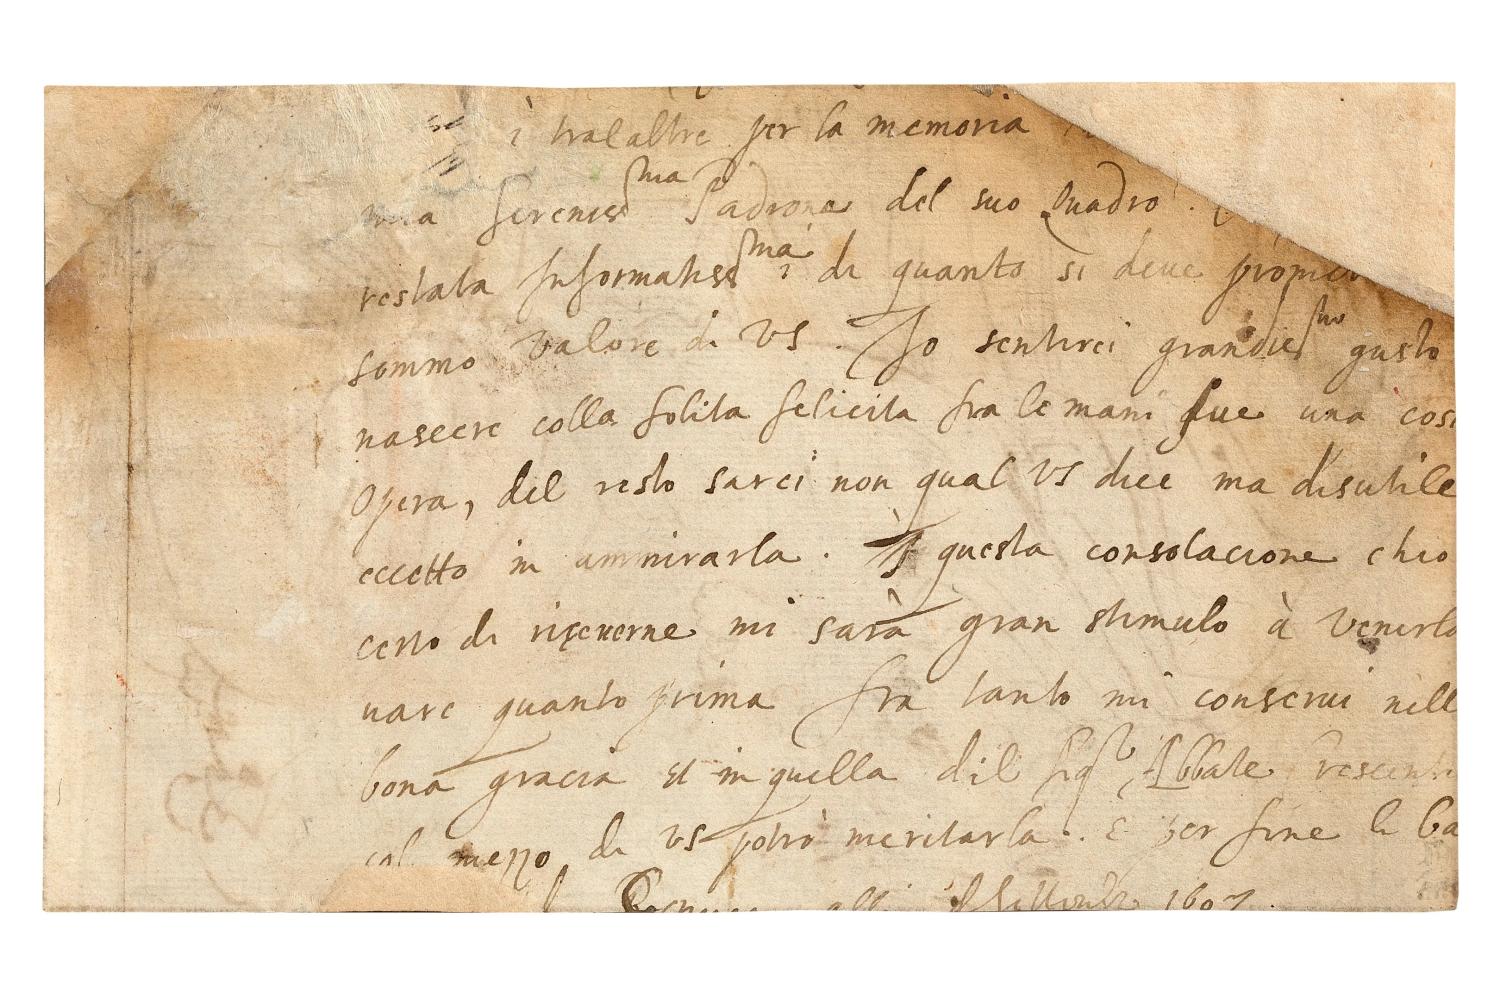 i tralaltre per la memoria
mia Sereniss.ma Padrona del suo Quadro .
restata Informatiss.ma i di quanto si deve promet
sommo valore di VS . Io sentirei grandiss.mo gusto
nascere colla solita felicita fra le mani sue una cosi
Opera, del resto sarei non qual VS dice ma disutile
eccetto in ammirarla . questa consolacione chio
certo di riceverne mi sarà gran stimulo à venirlo
uare quanto prima fra tanto mi conserui nell
bona gracia et in quella dil Sig.r Abbate
col mezzo di VS potrò meritarla . E per fine li ba
alli 1607.